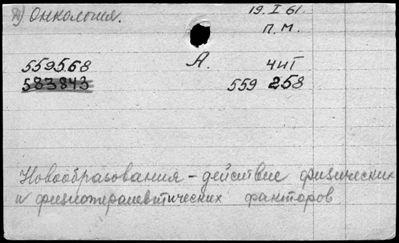 Д) Онкология.
19.I 61.
П.М.
559568 А. ЧИТ
583843 559 258
Новообразования - действие физических
и физиотерапевтических факторов